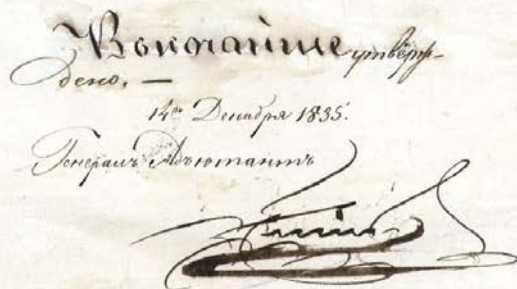 Высочайше утверж-
дено. —
14го Декабря 1835.
Генералъ Адъютантъ